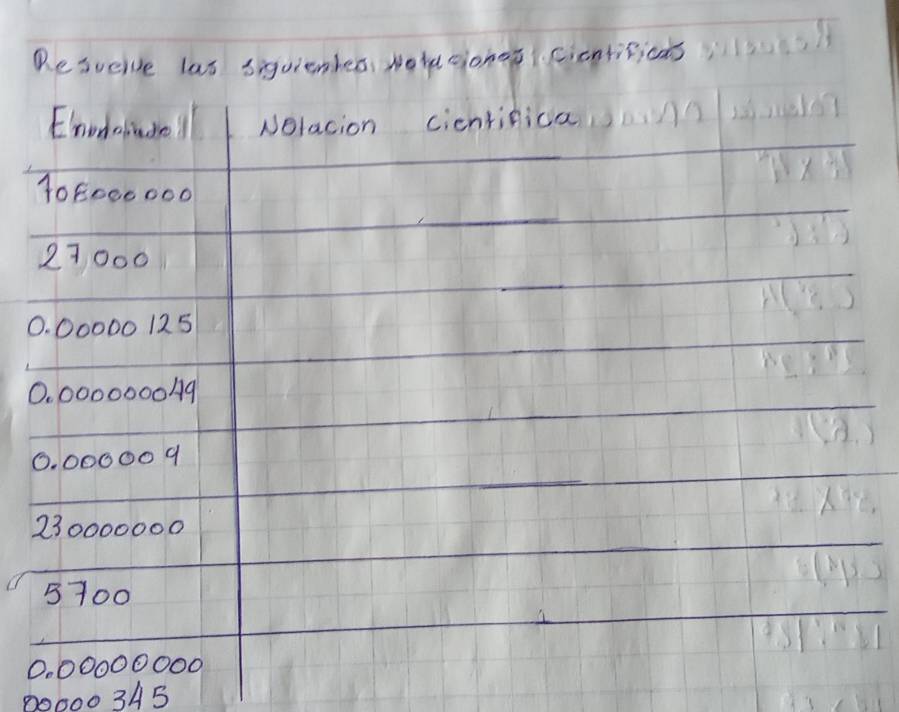 Resuelve las siguientes Notaciones cientificas
Notacion cientifica
708000000
27,000
0.00000125
0.000000049
0.000009
230000000
5700
0.00000000
00000345